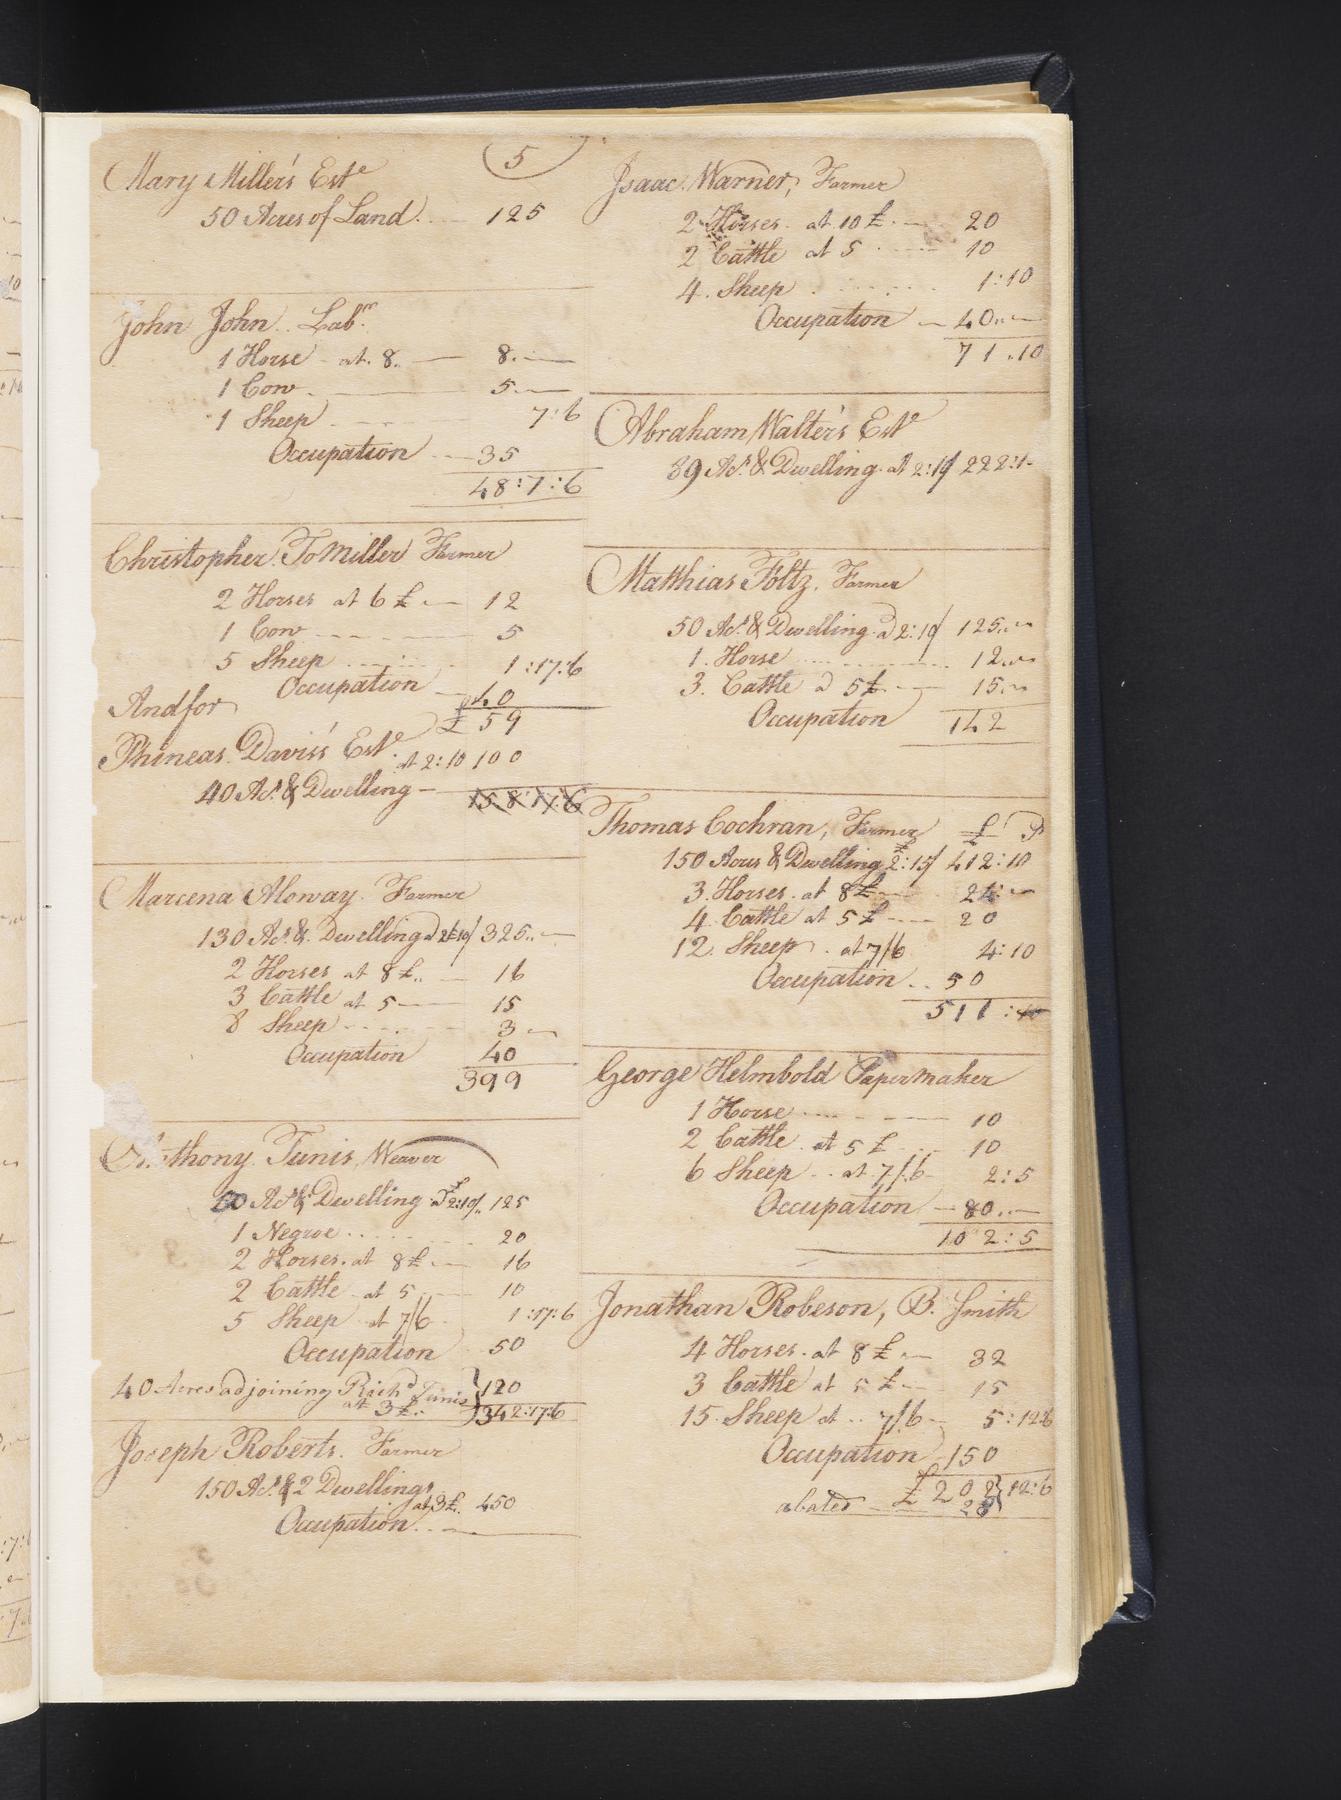 5
Mary Miller's Est.e
50 Acres of Land. 125
John John. Lab.r
1 Horse at 8.. 8.
1 Cow 5
1 Sheep 7:6
Occupation 35
48:7:6
Christopher ToMiller Farmer
2 Horses at 6 £ 12
1 Cow 5
5 Sheep 1:17:6
Occupation 40
And for £ 59
Phineas Davis's Est.e at 2:10 100
40 Ac.s & Dwelling 158:17:6
Marcena Aloway Farmer
130 Ac.s & Dwelling a 2:10/ 325..
2 Horses at 8 £.. 16
3 Cattle at 5 15
8 Sheep 3
Occupation 40
399
Anthony Tunis, Weaver
50 Ac.s & Dwelling a 2:10/.. 125
1 Negroe 20
2 Horses at 8 £ 16
2 Cattle at 5 10
5 Sheep at 7/6 1:17:6
Occupation 50
40 Acres adjoining Rich.d Tunis 120
att 3 £: 342:17:6
Joseph Roberts. Farmer
150 Ac.s & 2 Dwellings
at 3 £. 450
Occupation
Isaac Warner, Farmer
2 Horses at 10 £ 20
2 Cattle at 5 10
4 Sheep 1:10
Occupation 40..
71..10
Abraham Walter's Est.e
89 Ac.s & Dwelling at 2:10/ 222:1
Matthias Foltz, Farmer
50 Ac.s & Dwelling a 2:10/ 125..
1 Horse 12..
3 Cattle a 5 £ 15..
Occupation 142
Thomas Cochran, Farmer £
150 Acres & Dwelling £ 2:15/ 412:10
3 Horses at 8 £ 24
4 Cattle at 5 £ 20
12 Sheep at 7/6 4:10
Occupation .. 50
511:
George Helmbold Papermaker
1 Horse 10
2 Cattle at 5 £ 10
6 Sheep at 7/6 2:5
Occupation 80..
102:5
Jonathan Robeson, B. Smith
4 Horses at 8 £ 32
3 Cattle at 5 £ 15
15 Sheep at .. 7/6 5:12:6
Occupation 150
£ 202 12:6
abated 20